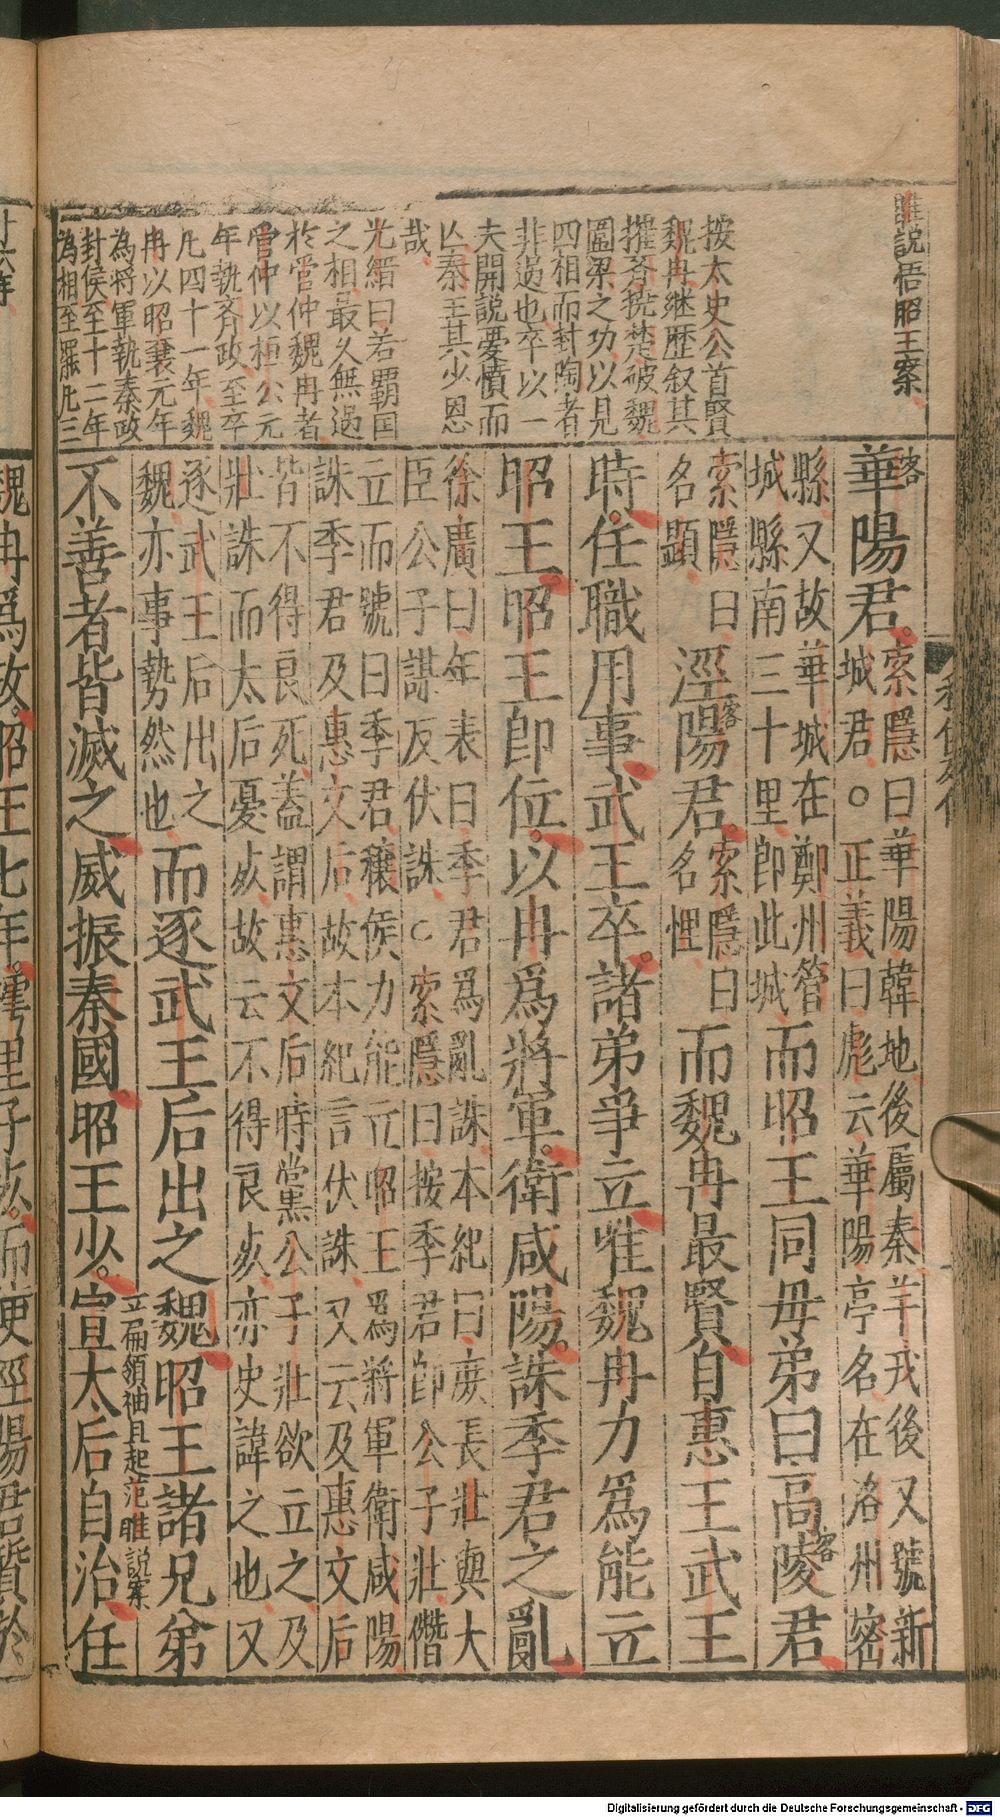 雎說悟昭王案
按太史公首賢
魏冉継歴叙其
攉斉撓楚破魏
圖梁之功以見
四相而封陶者
非過也卒以一
夫開説憂憤而
亾秦王其少恩
哉
光縉曰若覇国
之相最久無過
於管仲魏冉者
管仲以桓公元
年執斉政至卒
凡四十一年魏
冉以昭襄元年
為将軍執秦政
封侯至十二年
為相至罷凡三
華陽君索隱曰華陽韓地後屬秦羋戎後又號新
城君○正義曰彪云華陽亭名在洛州密
縣又故華城在鄭州管
城縣南三十里即此城而昭王同母弟曰高陵君
索隱曰
名顯涇陽君索隱曰
名悝而魏冉最賢自惠王武王
時任職用事武王卒諸弟爭立唯魏冉力爲能立
昭王昭王即位以冉爲將軍衛咸陽誅季君之亂
徐廣曰年表曰季君爲亂誅本紀曰庶長壯與大
臣公子謀反伏誅○索隱曰按季君即公子壯僭
立而號曰季君穰侯力能立昭王爲將軍衛咸陽
誅季君及惠文后故本紀言伏誅又云及惠文后
皆不得良死蓋謂惠文后時黨公子壯欲立之及
壯誅而太后憂死故云不得良死亦史諱之也又
逐武王后出之
魏亦事勢然也而逐武王后出之魏昭王諸兄弟
不善者皆滅之威振秦國昭王少宣太后自治任
立扁領袖且起范雎説案
客
客
客
穰侯列傳
十六年
魏冉爲政昭王七年樗里子死而使涇陽君質於
Digitalisierung gefördert durch die Deutsche Forschungsgemeinschaft - DFG